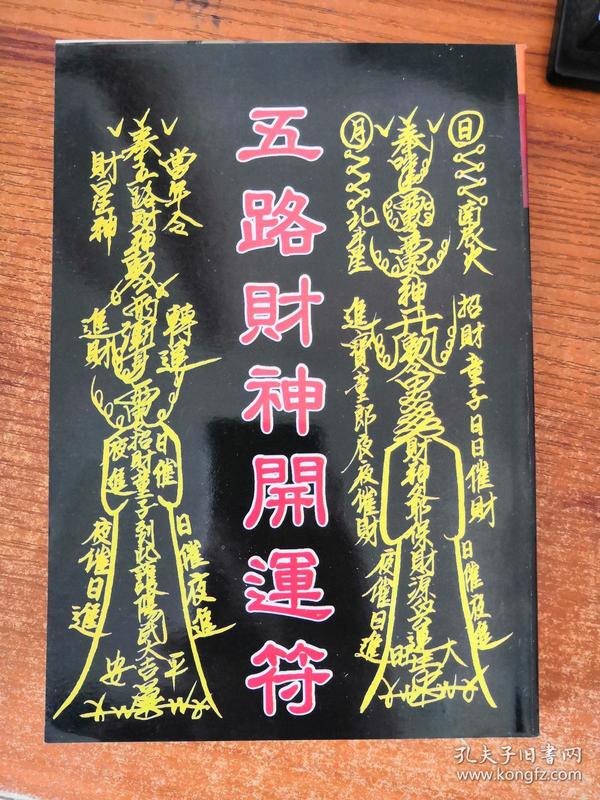 五路財神開運符
日
南辰火
招財童子日日催財
日催夜進
大
月
北斗星
進寶童郎辰夜催財
夜催日進
旺
財神爺保財源
當年令
轉運
日催
日催夜進
平
奉五路財神勅令
招財童子到此
財星神
進財
夜進
夜催日進
安
孔夫子旧書网
www.kongfz.com